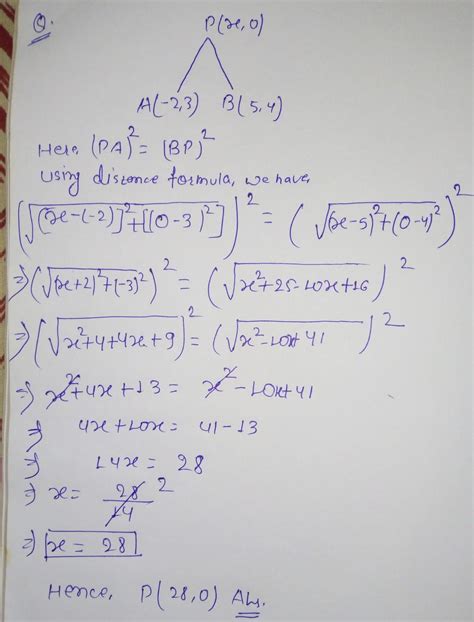 Q.
P(x,0)
A(-2,3) B(5,4)
Here (PA)² = (BP)²
using distance formula, we have,
(√[x-(-2)]²+[(0-3)²])² = (√(x-5)²+(0-4)²)²
⇒ (√(x+2)²+(-3)²)² = (√x²+25-10x+16)²
⇒ (√x²+4+4x+9)² = (√x²-10x+41)²
⇒ x²+4x+13 = x²-10x+41
⇒ 4x+10x = 41-13
⇒ 14x = 28
⇒ x = 28/14 2
⇒ x = 28
Hence, P(28,0) Ans.